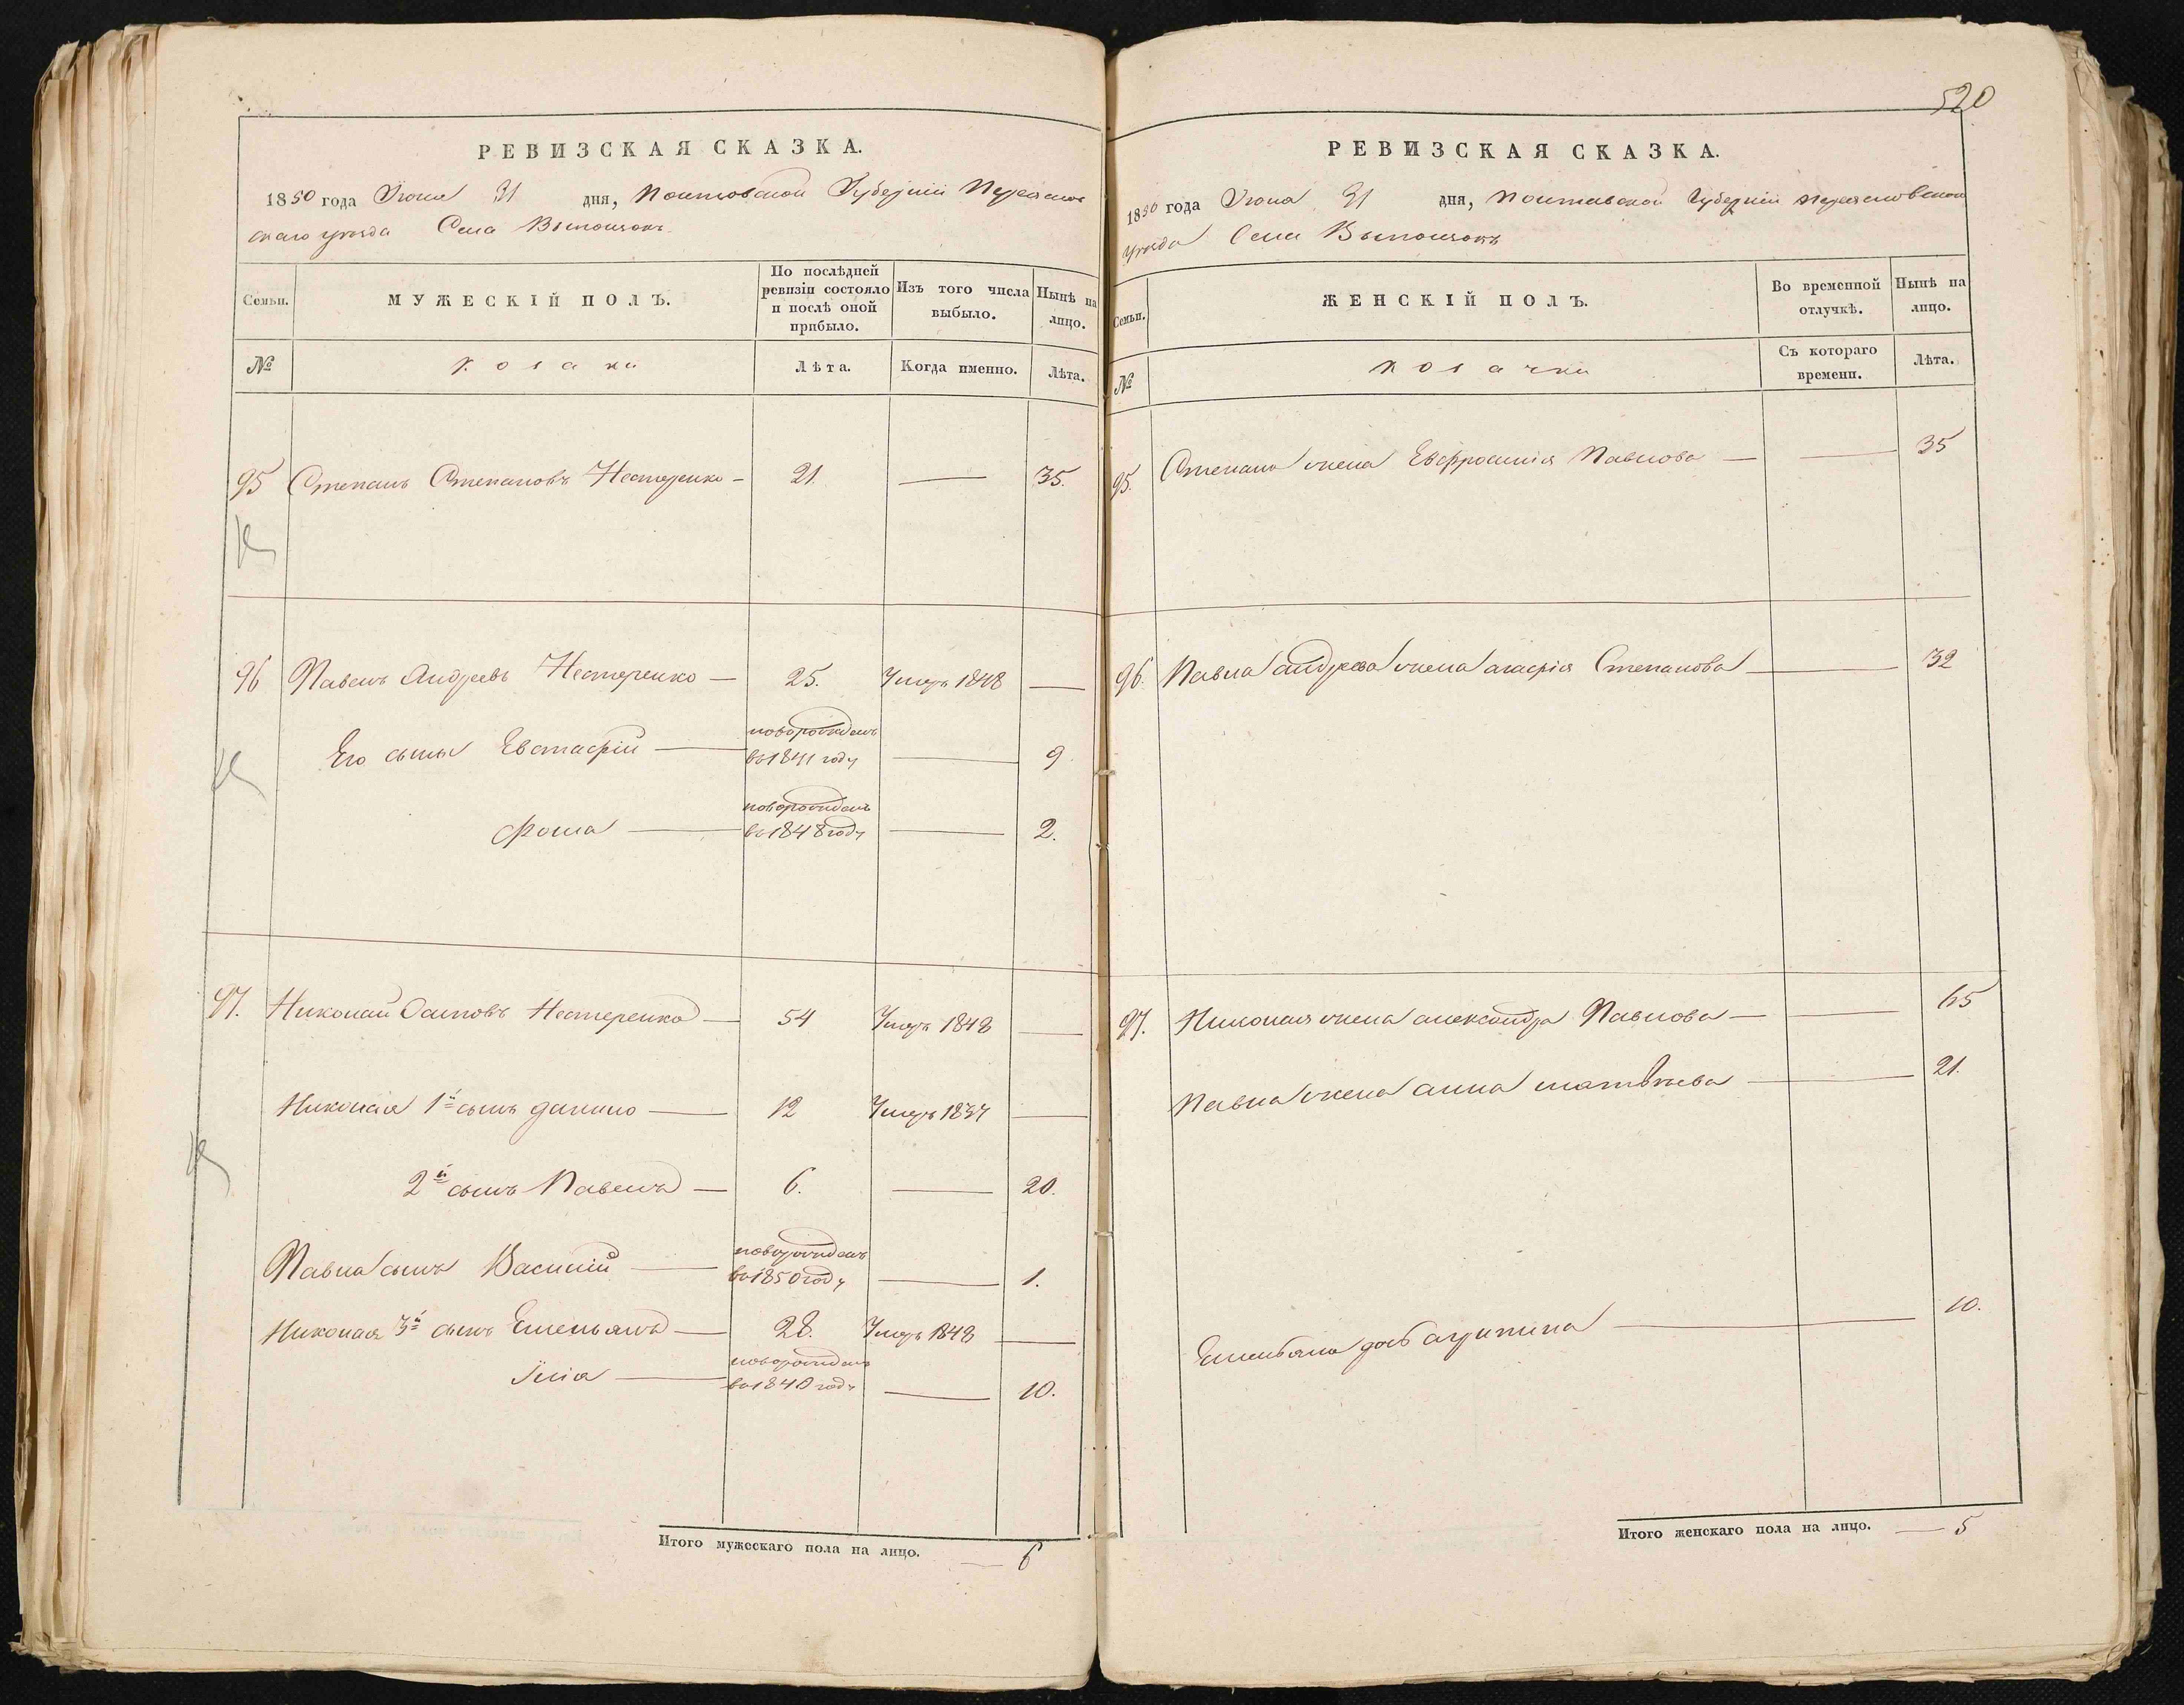 520
РЕВИЗСКАЯ СКАЗКА.
1850 года Июня 31 дня, Полтавской Губерніи Переяслов
скаго уезда Села
Семьи.
МУЖЕСКІЙ ПОЛЪ.
По послѣдней ревизіи состояло и послѣ оной прибыло.
Изъ того числа выбыло.
Нынѣ на лицо.
№
Козаки
Лѣта.
Когда именно.
Лѣта.
95 Степанъ Степановъ Нестеренко — 21. — 35.
96 Павелъ Андреевъ Нестеренко — 25. Умеръ 1848 —
новорожденъ
Его сынъ Евстафій — во 1841 году — 9
новорожденъ
Фома — во 1848 году — 2.
97. Николай Осиповъ Нестеренко — 54 Умеръ 1848 —
Николая 1й сынъ Данило — 12 Умеръ 1837 —
2й сынъ Павелъ — 6. — 20.
новорожденъ
Павла сынъ Василій — во 1850 году — 1.
Николая 3й сынъ Емельянъ — 28. Умеръ 1848 —
новорожденъ
Илія — во 1840 году — 10.
Итого мужескаго пола на лицо. — 6
РЕВИЗСКАЯ СКАЗКА.
1850 года Июня 31 дня, Полтавской Губерніи Переясловскаго
уезда Села
Семьи.
ЖЕНСКІЙ ПОЛЪ.
Во временной отлучкѣ.
Нынѣ на лицо.
№
Козачки
Съ котораго времени.
Лѣта.
95. Степана жена Евфросинія Павлова — — 35
96. Павла Андреева жена Агафія Степанова — 32
97. Николая жена Александра Павлова — — 65
Павла жена Анна Матвѣева — 21.
Емельяна дочь Агрипина — 10.
Итого женскаго пола на лицо. — 5